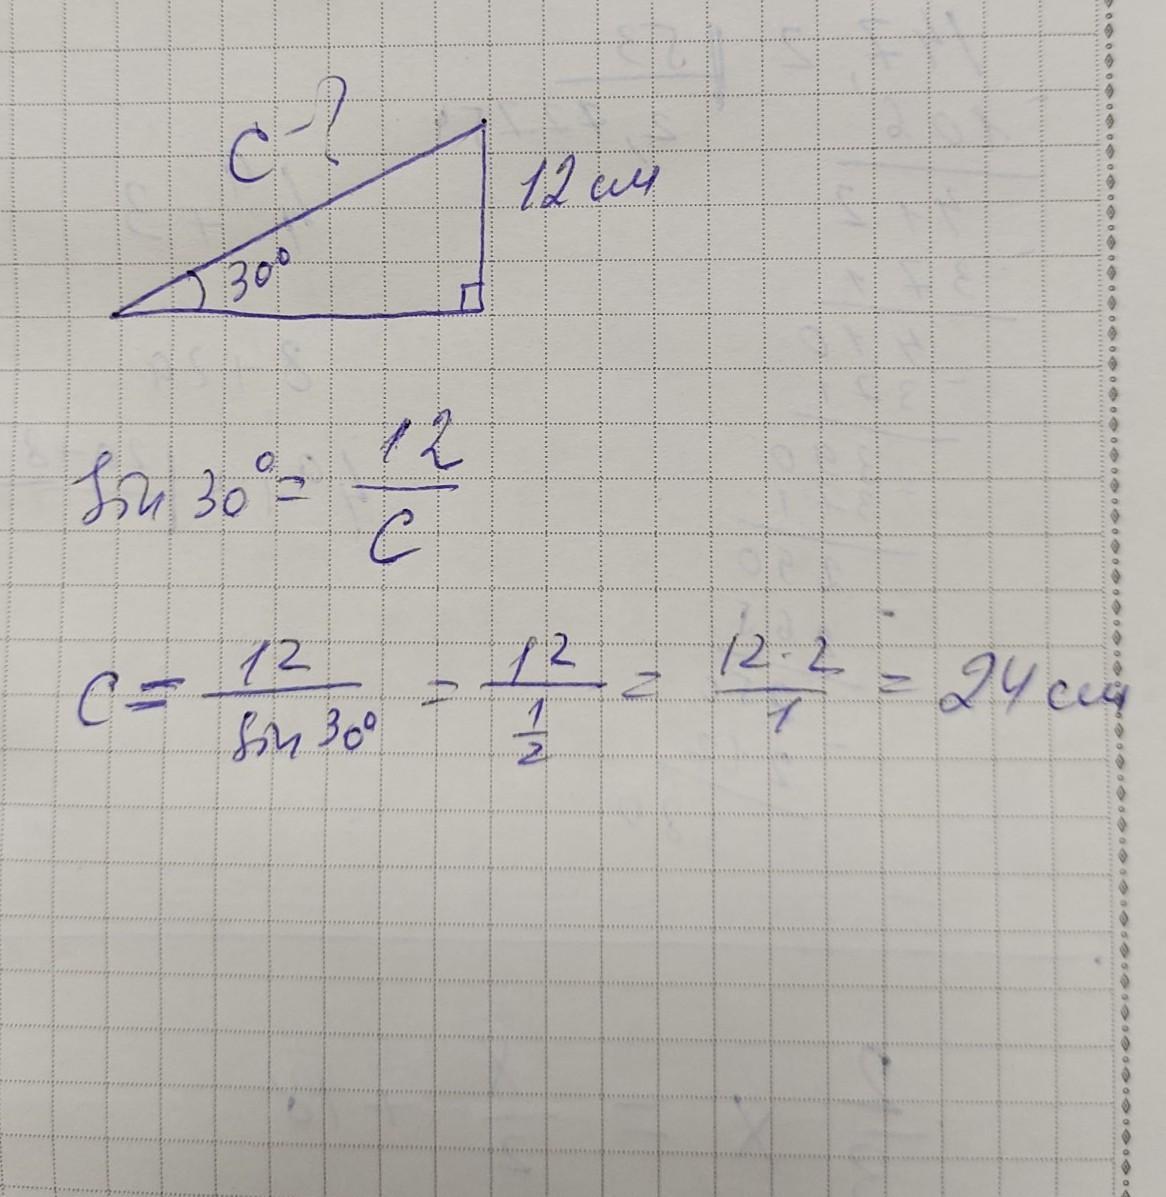 c - ?
12 см
30°
sin 30° = 12/c
c = 12/sin 30° = 12/(1/2) = 12·2/1 = 24 см